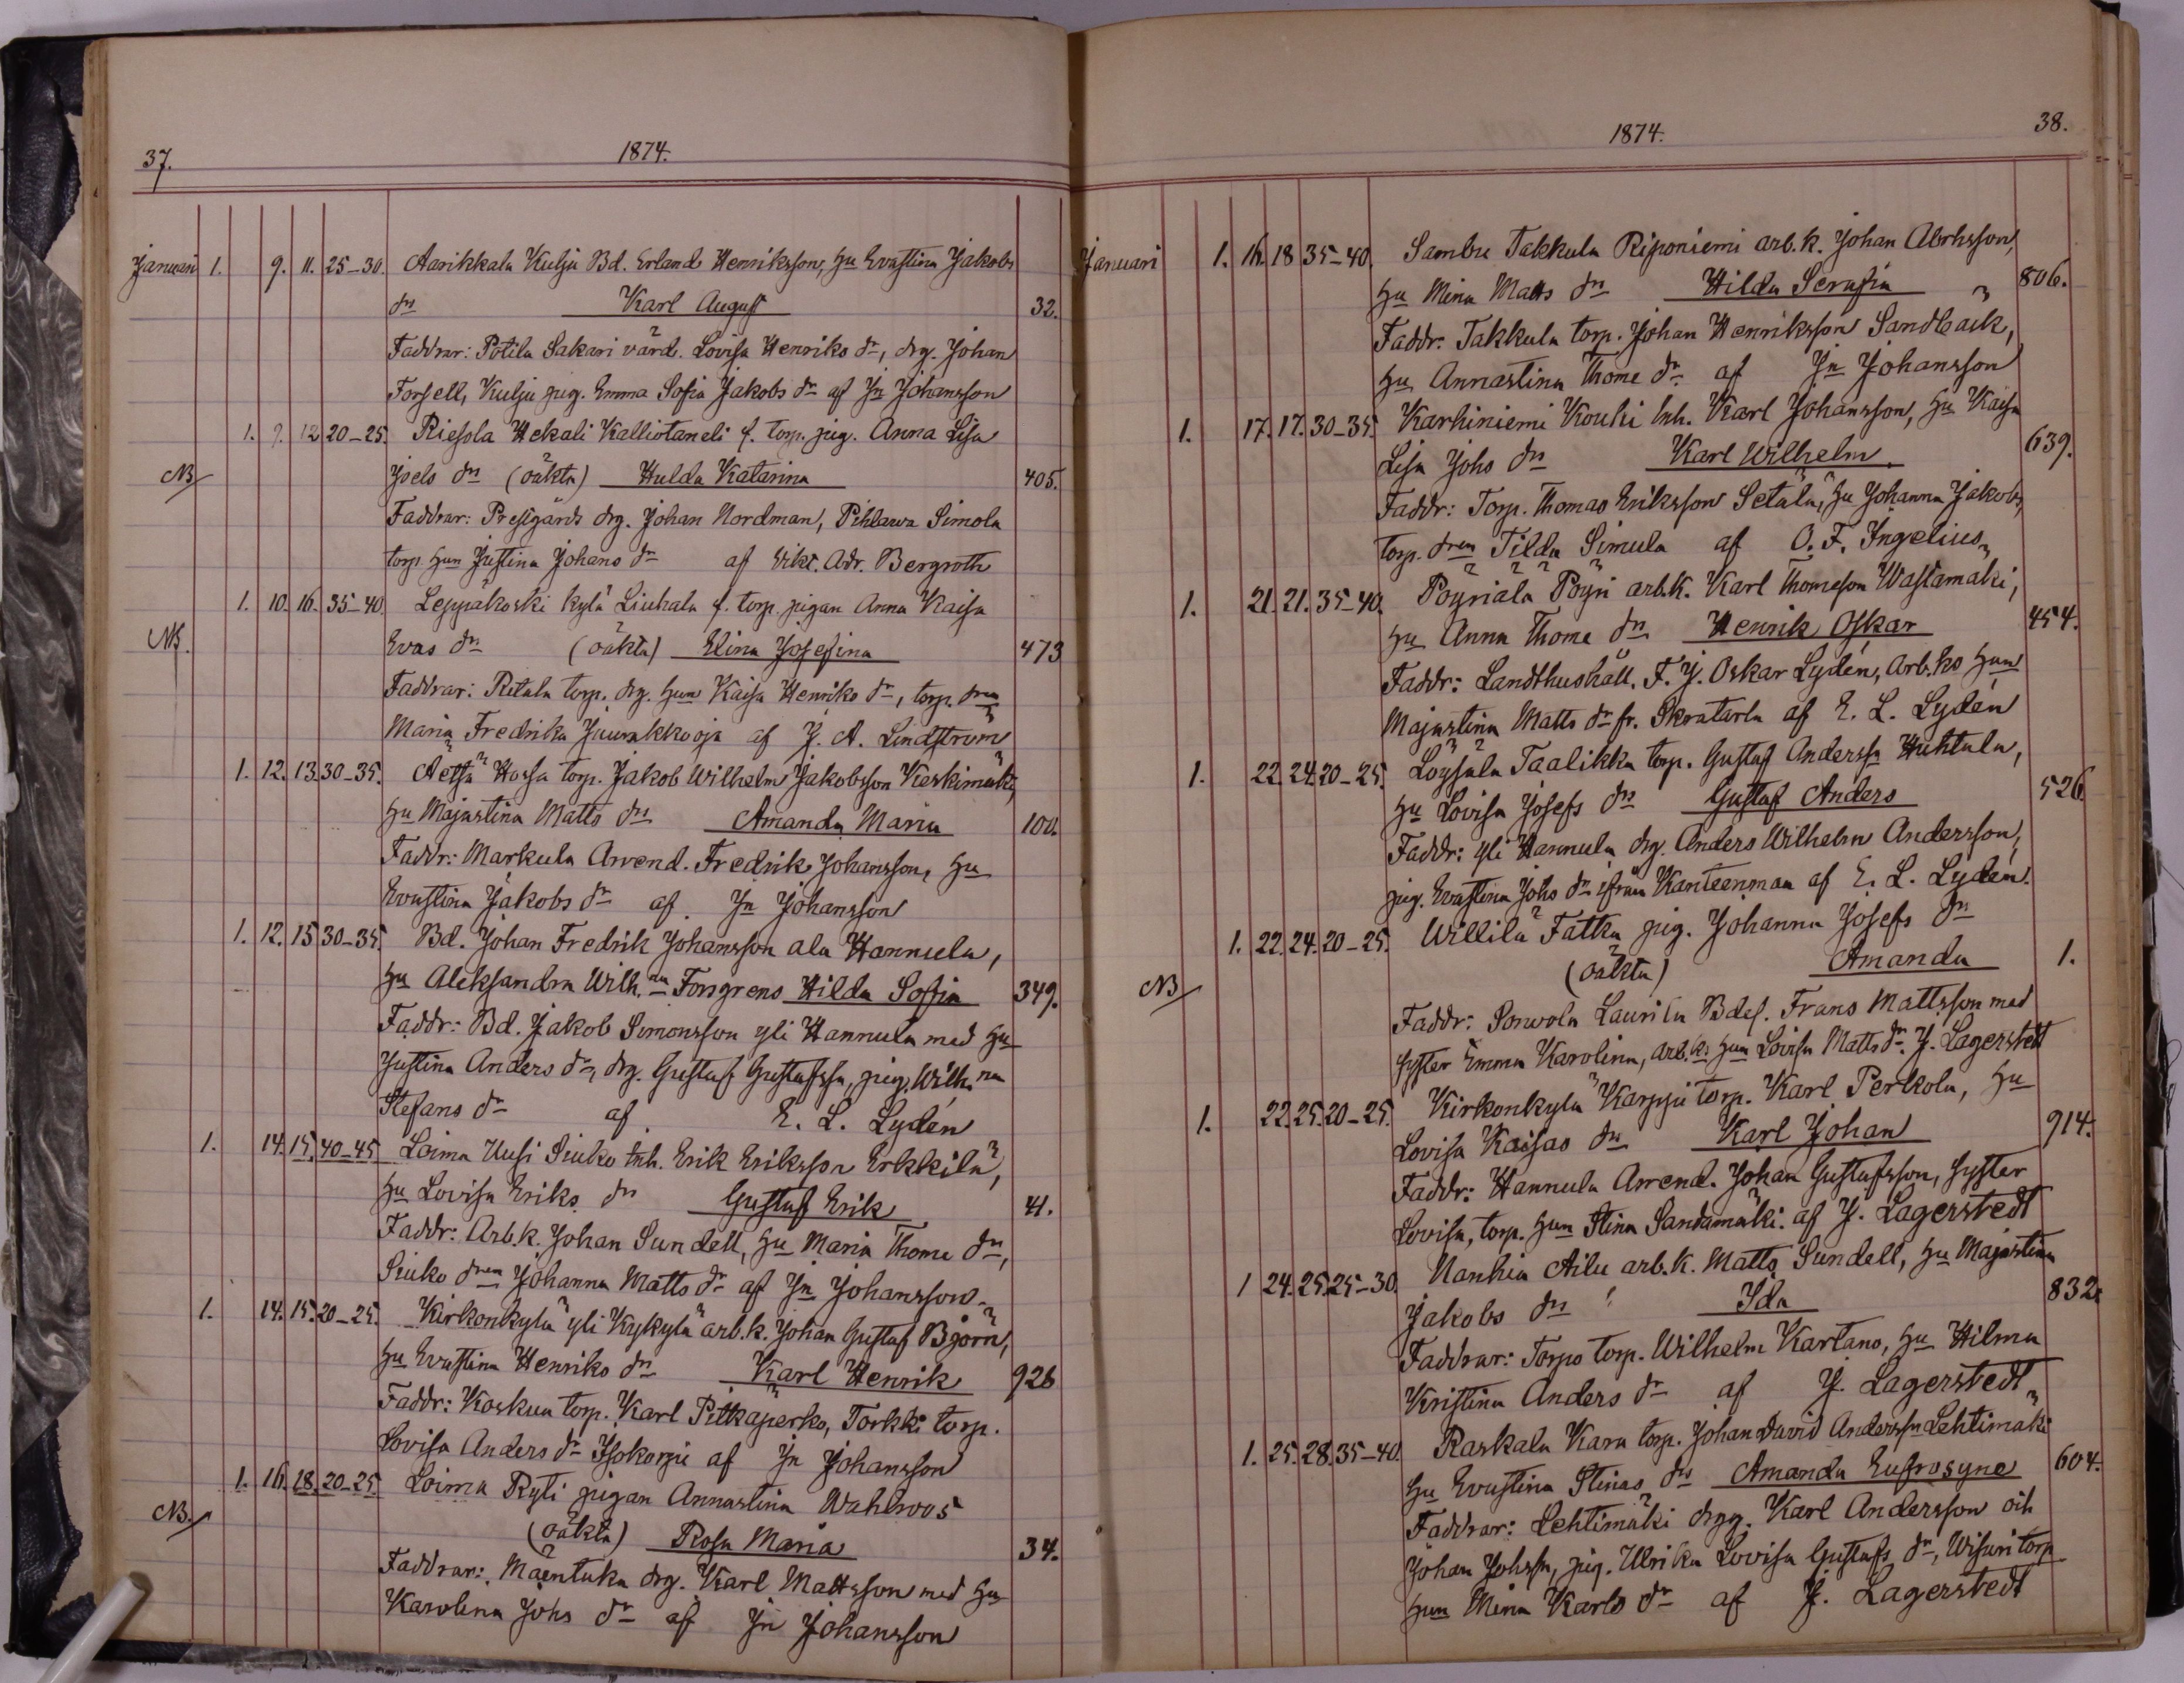 37.
1874.
Januari 1. 9. 11. 25-30. Aarikkala Kulju Bd. Erland Henriksson, Hu Evastina Jakobs
dr Karl August 32.
Faddrar: Potila Sakari värd. Lovisa Henriks dr, drg. Johan
Forsell, Kulju pig. Emma Sofia Jakobs dr af Jn Johansson
1. 9. 12 20-25. Riesola Hekali Kalliotaneli f. torp. pig. Anna Lisa
NB Joels dr (oäkta) Hulda Katarina 405.
Faddrar: Prestgårds drg. Johan Nordman, Pihlava Simola
torp. hun Justina Johans dr af Vikt. Adr. Bergroth
1. 10. 16. 35-40. Leppäkoski kylä Liuhala f. torp. pigan Anna Kaisa
NB. Evas dr (oäkta) Elina Josefina 473
Faddrar: Retula torp. drg. hun Kaisa Henriks dr, torp. dren
Maria Fredrika Juurakkooja af J. A. Lindström
1. 12. 13. 30-35. Aetsä Hossa torp. Jakob Wilhelm Jakobsson Keskimäki,
Hu Majastina Matts dr Amanda Maria 100.
Faddr: Markula Arrend. Fredrik Johansson, Hu
Evastina Jakobs dr af Jn Johansson
1. 12. 15 30-35. Bd. Johan Fredrik Johansson ala Hannula,
Hu Aleksandra Wilh.na Forsgrens Hilda Sofia 349.
Faddr: Bd. Jakob Simonsson yli Hannula med Hu
Justina Anders dr, drg. Gustaf Gustafssn, pig. Wilh.na
Stefans dr af E. L. Lydén
1. 14. 15. 40-45 Loima Uusi Siuko inh. Erik Eriksson Erkkilä,
Hu Lovisa Eriks dr Gustaf Erik 41.
Faddr: Arb.k. Johan Sundell, Hu Maria Thome dr,
Siuko dren Johanna Matts dr af Jn Johansson
1. 14. 15. 20-25. Kirkonkylä yli Kykylä arb.k. Johan Gustaf Björn,
Hu Evastina Henriks dr Karl Henrik 926
Faddr: Koskua torp. Karl Pitkäperko, Torkki torp.
Lovisa Anders dr Isokorpi af Jn Johansson
1. 16. 18. 20-25 Loima Ryti pigan Annastina Wahlroos
NB. (oäkta) Rosa Maria 34.
Faddrar: Mäentaka drg. Karl Mattsson med Hu
Karolina Johs dr af Jn Johansson
1874.
38.
Januari 1. 16. 18 35-40. Sambu Takkula Riponiemi arb.k. Johan Abrhsson,
Hu Mina Matts dr Hilda Serafia 806.
Faddr: Takkula torp. Johan Henriksson Sandback,
Hu Annastina Thome dr af Jn Johansson
1. 17. 17. 30-35. Karhiniemi Kouhi Inh. Karl Johansson, Hu Kaisa
Lisa Johs dr Karl Wilhelm. 639.
Faddr: Torp. Thomas Eriksson Setälä, Hu Johanna Jakobs,
torp. dren Tilda Simula af O. F. Ingelius
1. 21. 21. 35-40. Pöyriälä Pöyri arb.k. Karl Thomeson Wastamäki,
Hu Anna Thome dr Henrik Oskar 454.
Faddr: Landthushåll. F. J. Oskar Lydén, Arb.ks hun
Majastina Matts dr fr. Skratarla af E. L. Lydén
1. 22. 24. 20-25. Löysälä Taalikka torp. Gustaf Anderssn Huhtala,
Hu Lovisa Josefs dr Gustaf Anders 526.
Faddr: yli Hannula drg. Anders Wilhelm Andersson,
pig. Evastina Johs dr ifrån Kanteenmaa af E. L. Lydén.
1. 22. 24. 20-25. Willilä Fatka pig. Johanna Josefs dr
NB (oäkta) Amanda 1.
Faddr: Sorvola Laurila Bdes. Frans Mattsson med
syster Emma Karolina, arb.ks hun Lovisa Matts dr. J. Lagerstedt
1. 22. 25. 20-25. Kirkonkylä Karppi torp. Karl Perkola, Hu
Lovisa Kaisas dr Karl Johan 914.
Faddr: Hannula Arrend. Johan Gustafsson, Syster
Lovisa, torp. hun Stina Santamäki. af J. Lagerstedt
1 24. 25. 25-30. Nanhia Ailu arb.k. Matts Sundell, Hu Majastina
Jakobs dr Ida 832.
Faddrar: Torps torp. Wilhelm Kartano, Hu Hilma
Kristina Anders dr af J. Lagerstedt
1. 25. 28. 35-40. Raskala Kara torp. Johan David Anderssn Lehtimäki
Hu Evastina Stinas dr Amanda Eufrosyne 604.
Faddrar: Lehtimäki drgg. Karl Andersson och
Johan Johssn, pig. Ulrika Lovisa Gustafs dr, Wisuri torp
hun Mina Karls dr af J. Lagerstedt